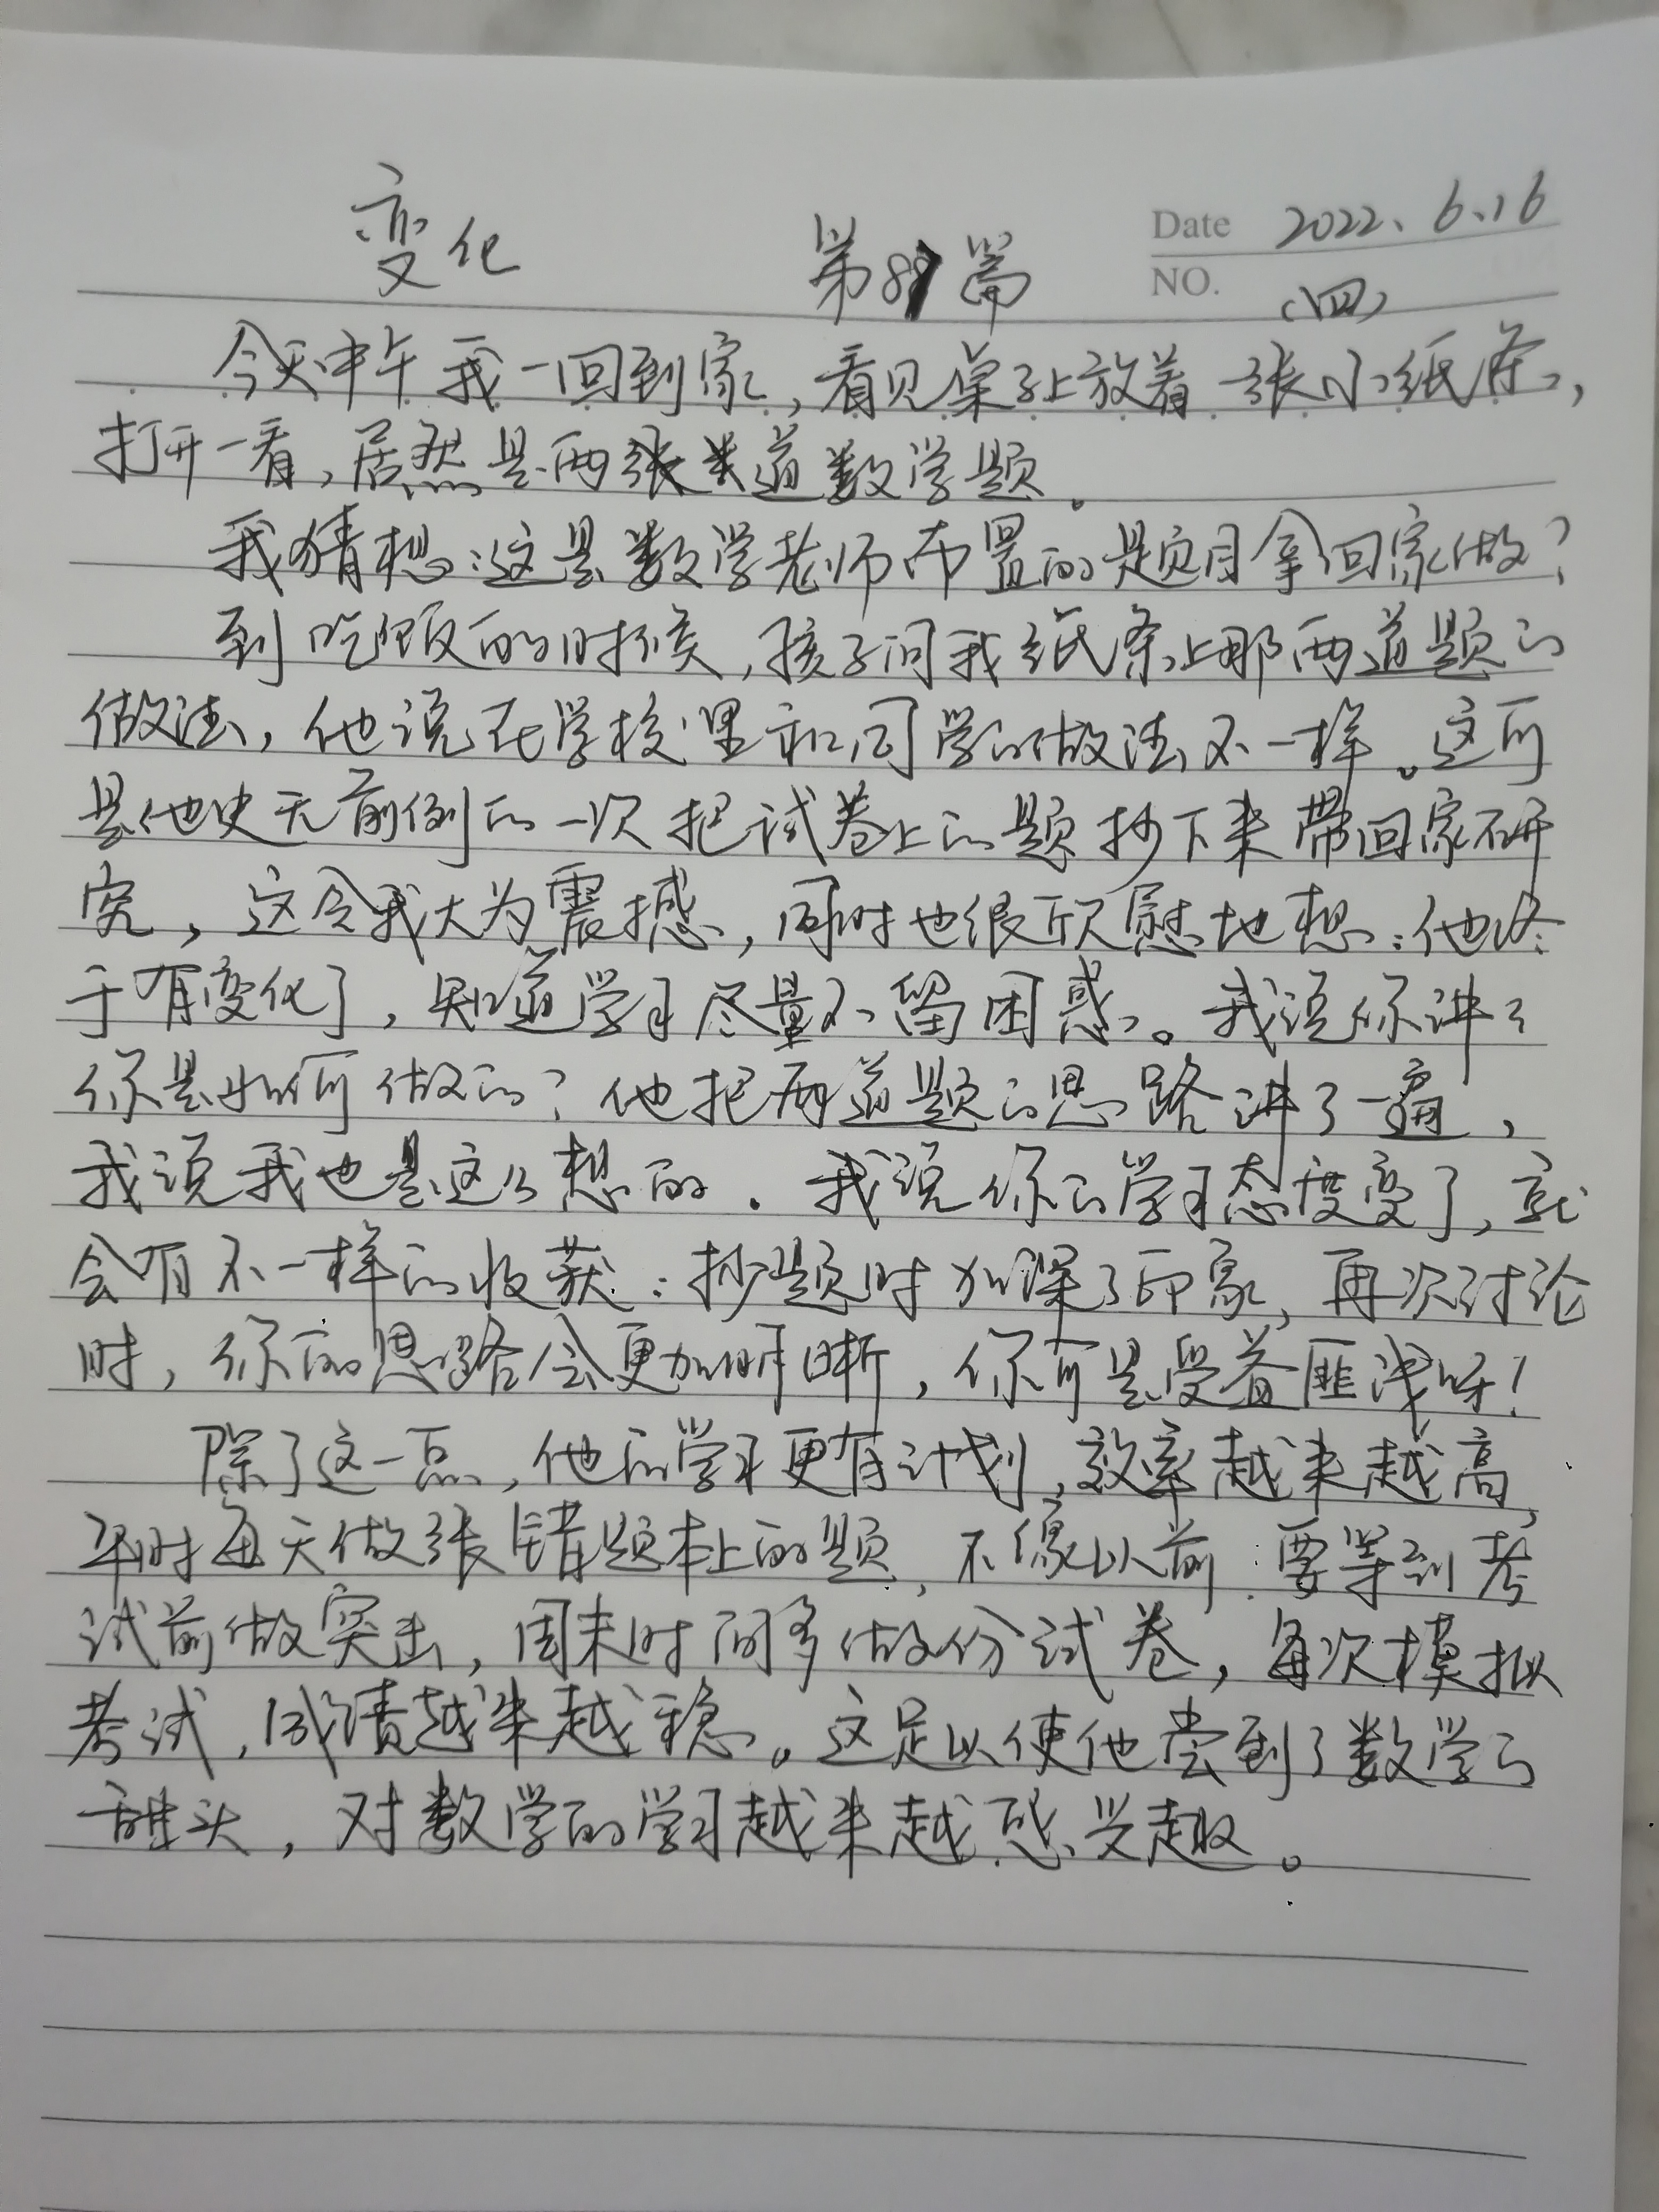 变化 第87篇 Date 2022、6、16
NO. (四)
今天中午我一回到家,看见桌子上放着一张小纸条,
打开一看,居然是两张类道数学题。
我猜想:这是数学老师布置的题目拿回家做?
到吃饭的时候,孩子问我纸条上那两道题的
做法,他说在学校里和同学的做法不一样。这可
是他史无前例的一次把试卷上的题抄下来带回家研
究,这令我大为震撼,同时也很欣慰地想:他终
于有变化了,知道学习尽量不留困惑。我说你讲讲
你是如何做的?他把两道题的思路讲了一遍,
我说我也是这么想的.我说你的学习态度变了,就
会有不一样的收获:抄题时加深了印象,再次讨论
时,你的思路会更加明晰,你可是受益匪浅呀!
除了这一点,他的学习更有计划,效率越来越高,
平时每天做张错题本上的题,不像以前:要等到考
试前做突击,周末时间多做份试卷,每次模拟
考试,成绩越来越稳。这足以使他尝到了数学的
甜头,对数学的学习越来越感兴趣。